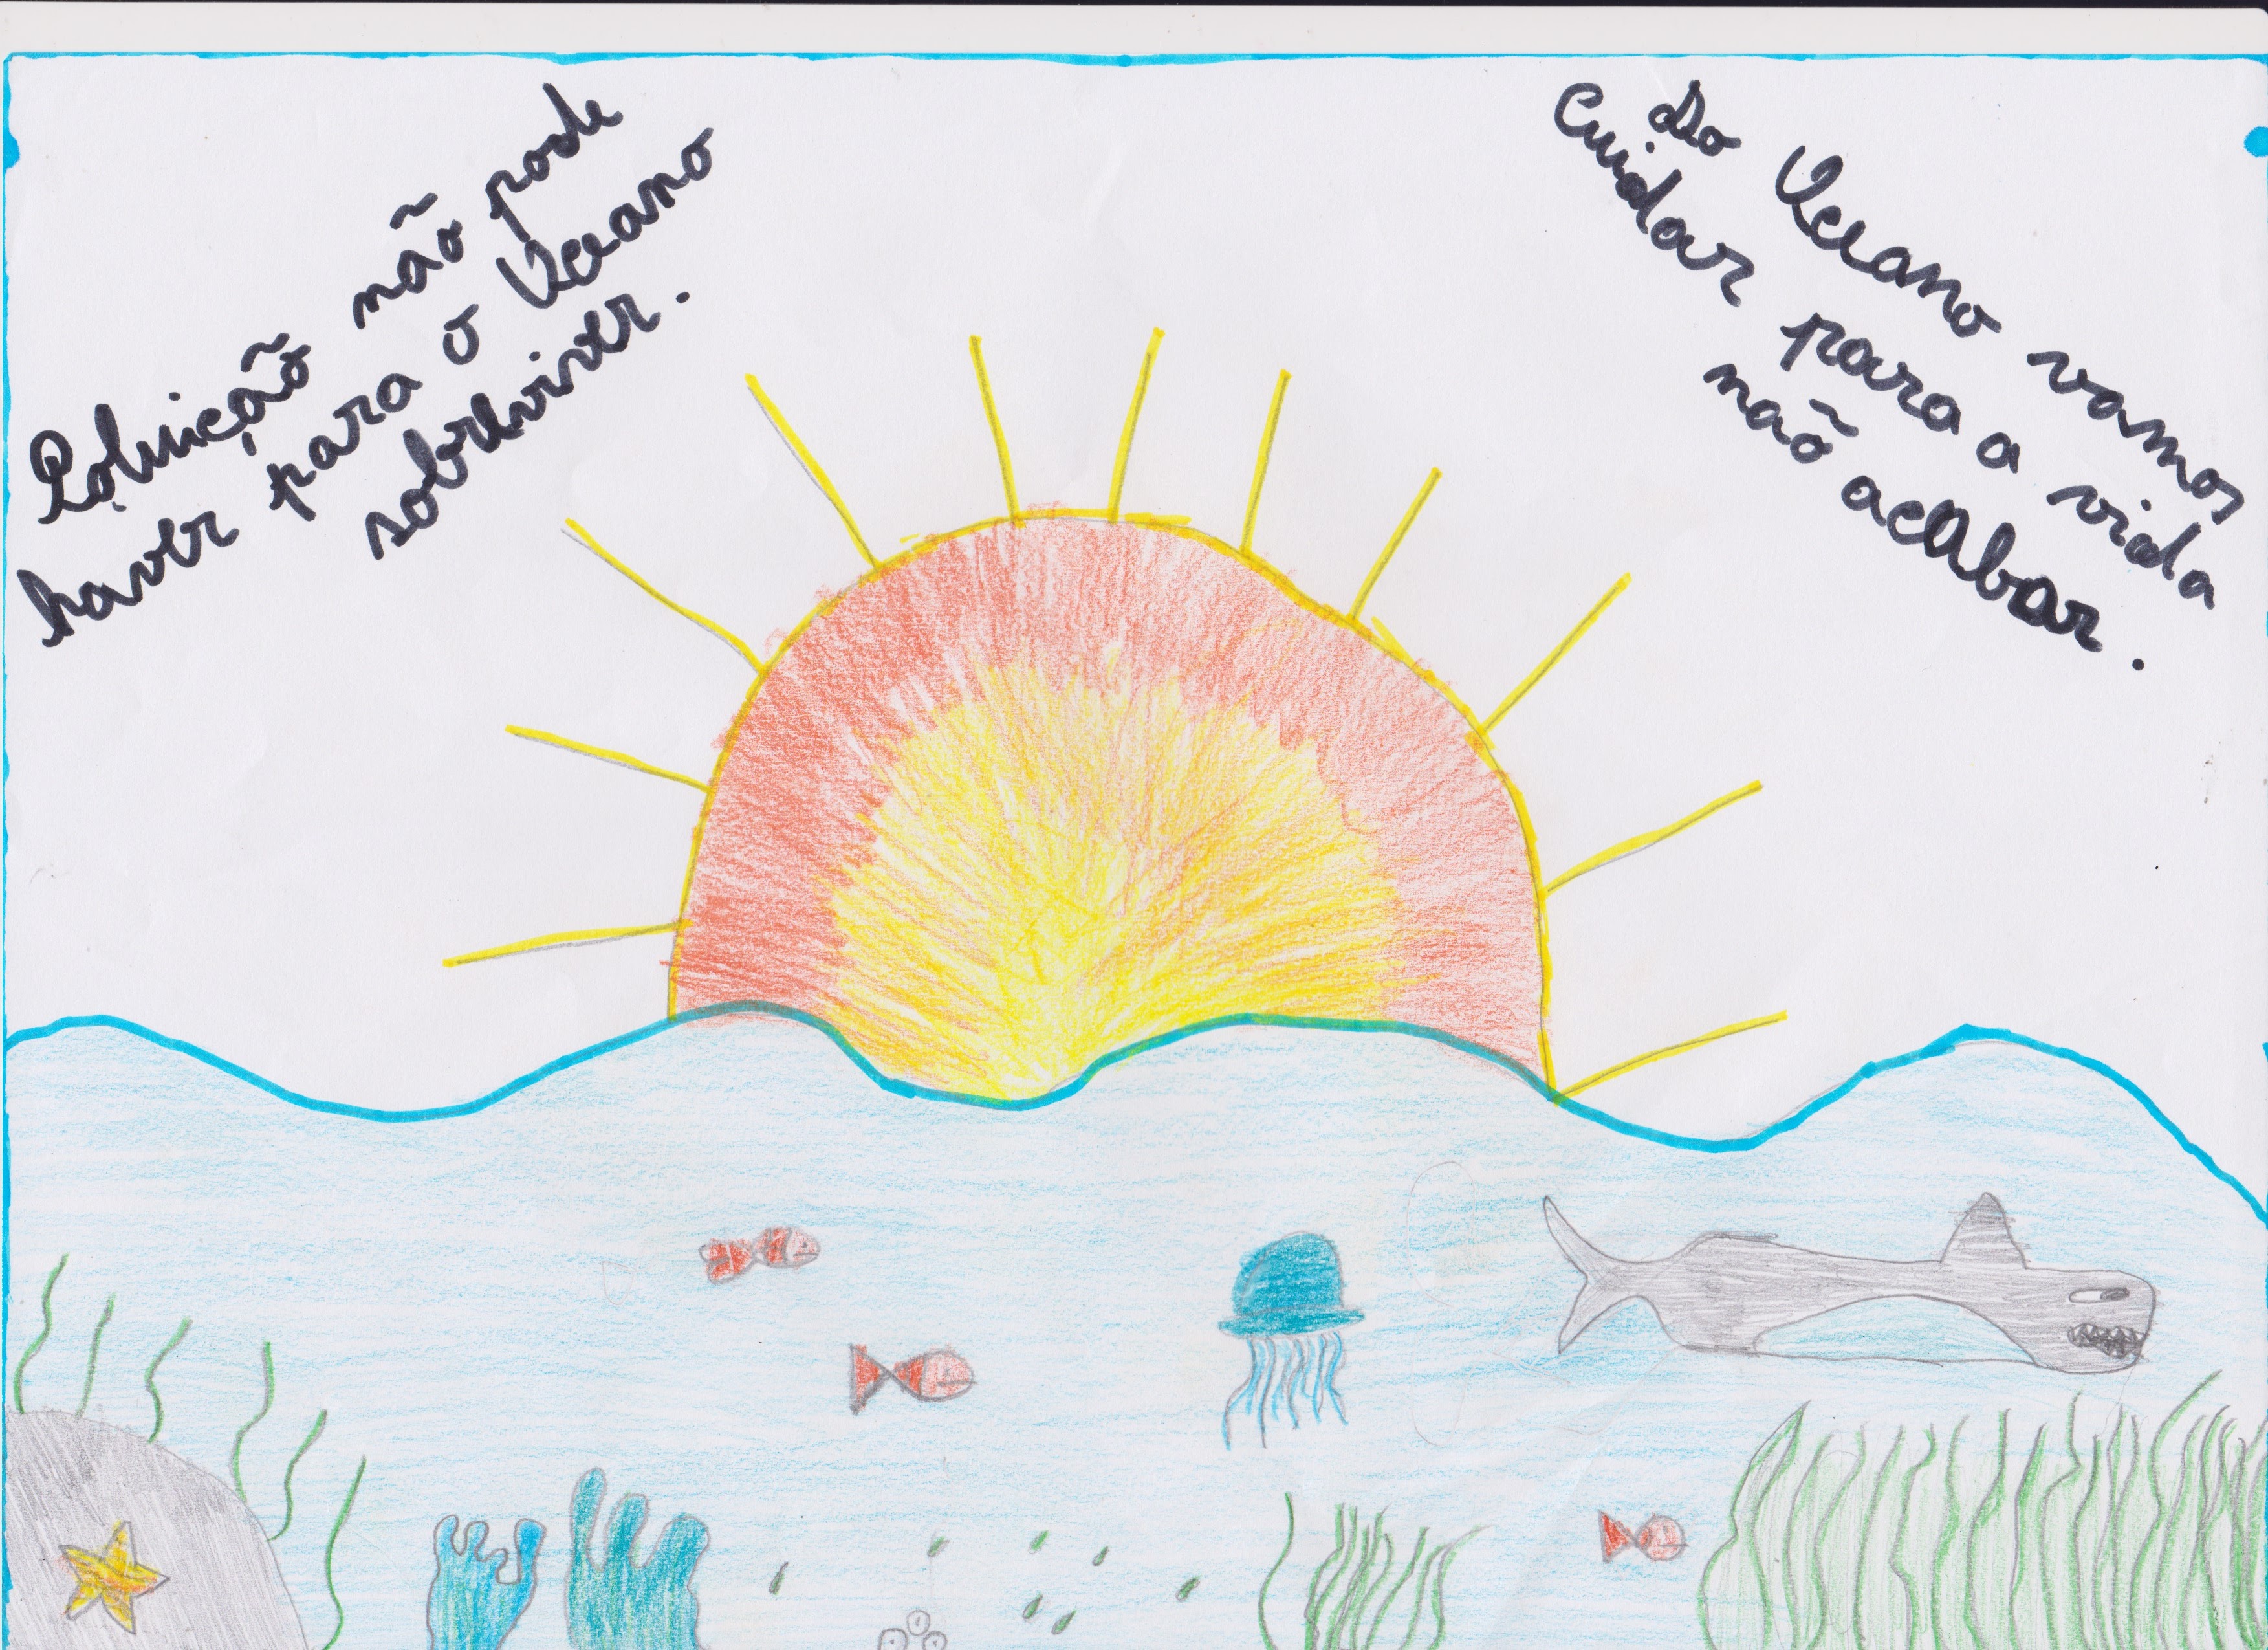 Poluição não pode
haver para o Oceano
sobreviver.
Do Oceano vamos
Cuidar para a vida
não acabar.